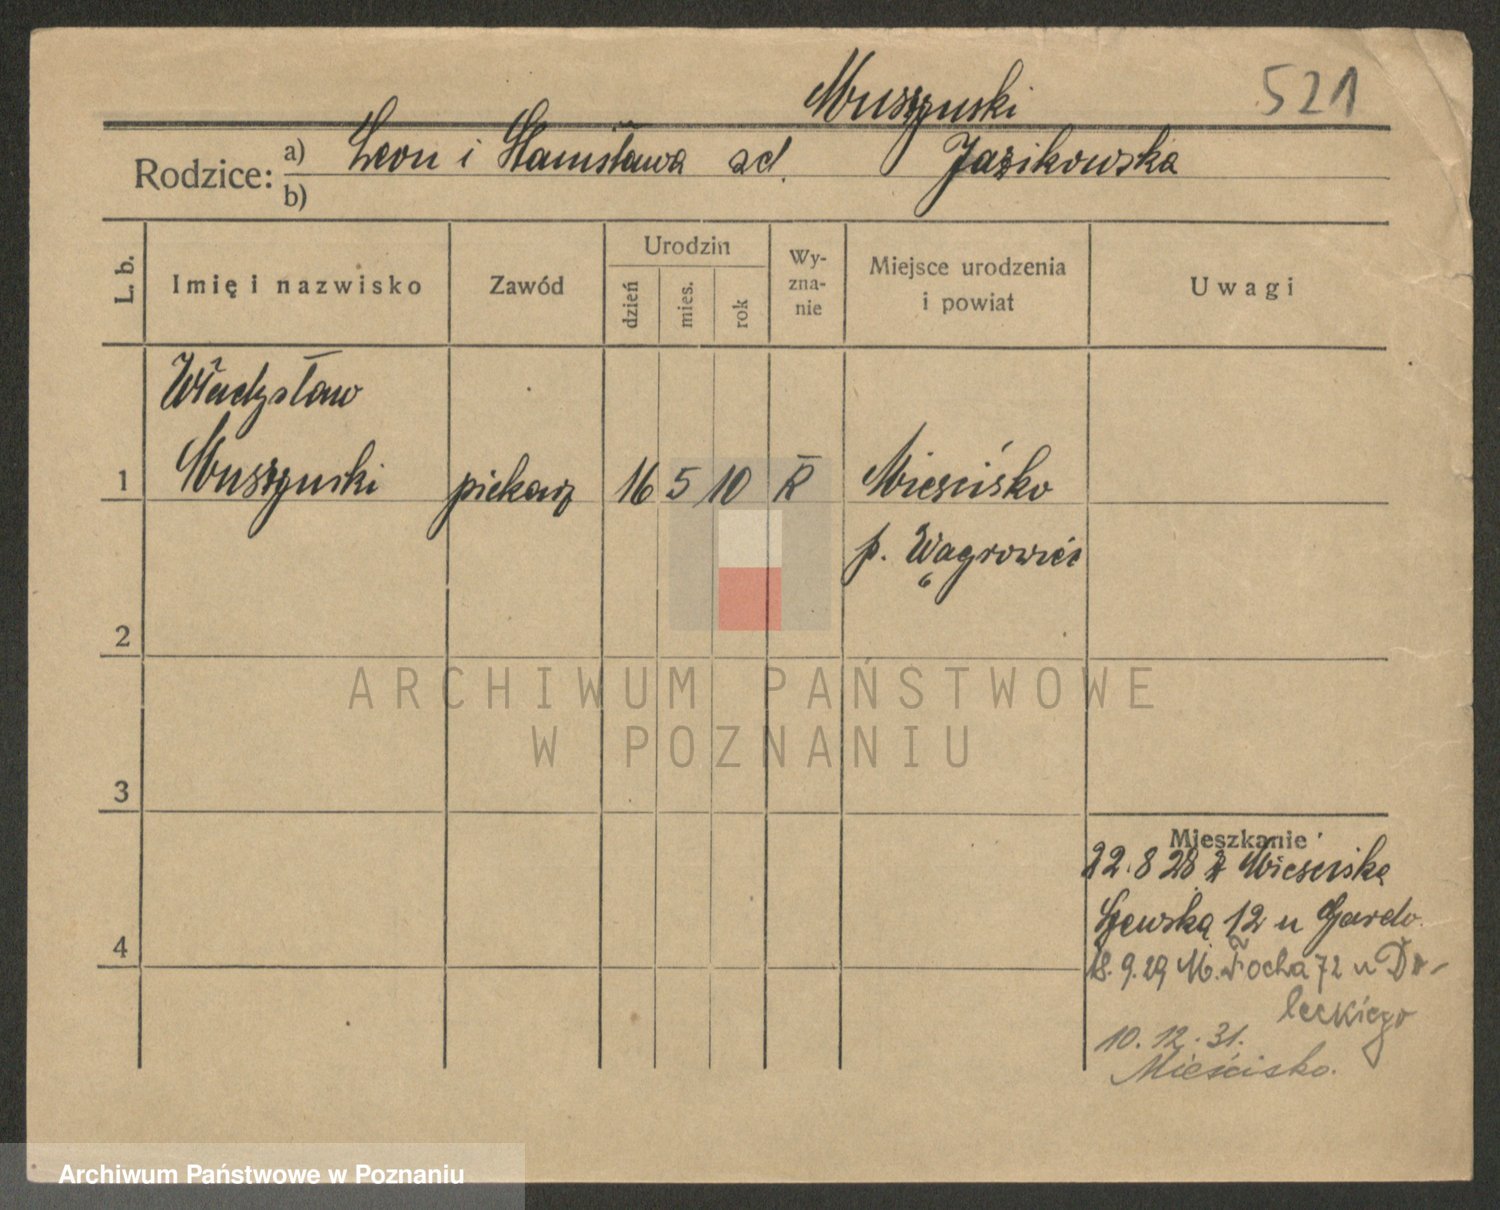 Muszyński
521
Rodzice:
a) Leon i Stanisława zd. Jazikowska
b)
L. b.
Imię i nazwisko
Zawód
Urodzin
dzień
mies.
rok
Wy-
zna-
nie
Miejsce urodzenia
i powiat
Uwagi
Władysław
1 Muszyński piekarz 16 5 10 R Mieścisko
p. Wągrowiec
2
ARCHIWUM PAŃSTWOWE
W POZNANIU
3
Mieszkanie
22.8 28 z Mieściska
12 u Gardo
4
18.9.29 M. Focha 72 u Do-
leckiego
10.12.31.
Mieścisko.
Archiwum Państwowe w Poznaniu